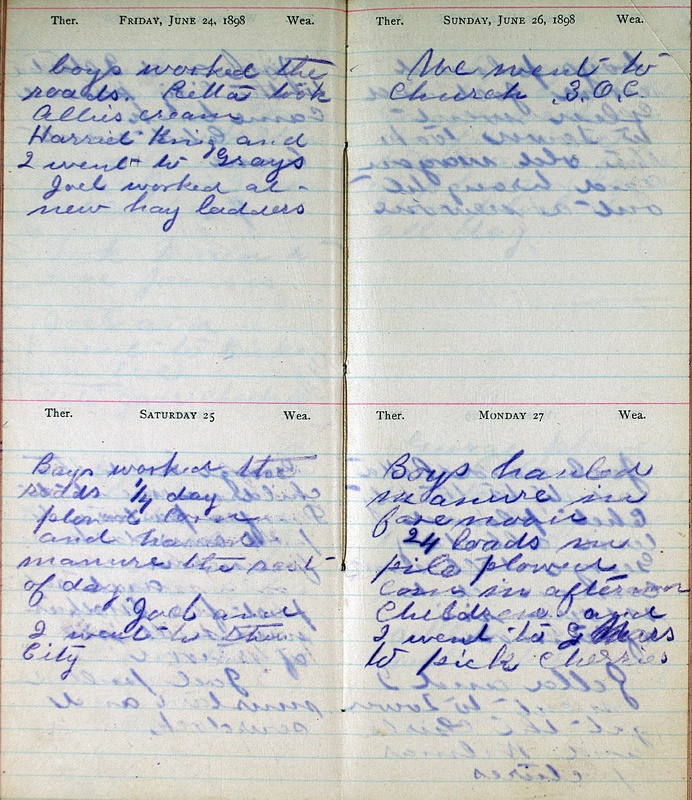 Ther. FRIDAY, JUNE 24, 1898 Wea.
boys worked the
roads. Zetta took
Allies cream
Harriet King and
I went to Grays
Joel worked at
new hay ladders
Ther. SATURDAY 25 Wea.
Boys worked the
roads 1/4 day
plowed corn
and hauled
manure the rest
of day. Joel and
I went to
City
Ther. SUNDAY, JUNE 26, 1898 Wea.
We went to
Church S.O.C.
Ther. MONDAY 27 Wea.
Boys hauled
manure in
forenoon
24 loads in
pile plowed
corn in afternoon
Children and
I went to G Mars
to pick cherries